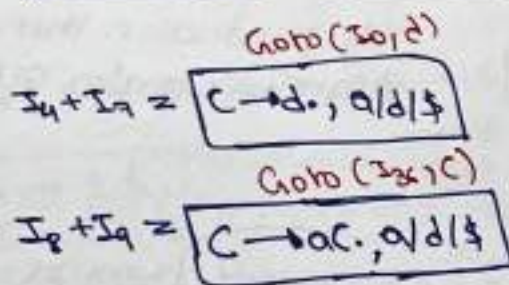 Goto (I0, d)
I4 + I7 = C → d., a/d/$
Goto (I36, C)
I8 + I9 = C → aC., a/d/$